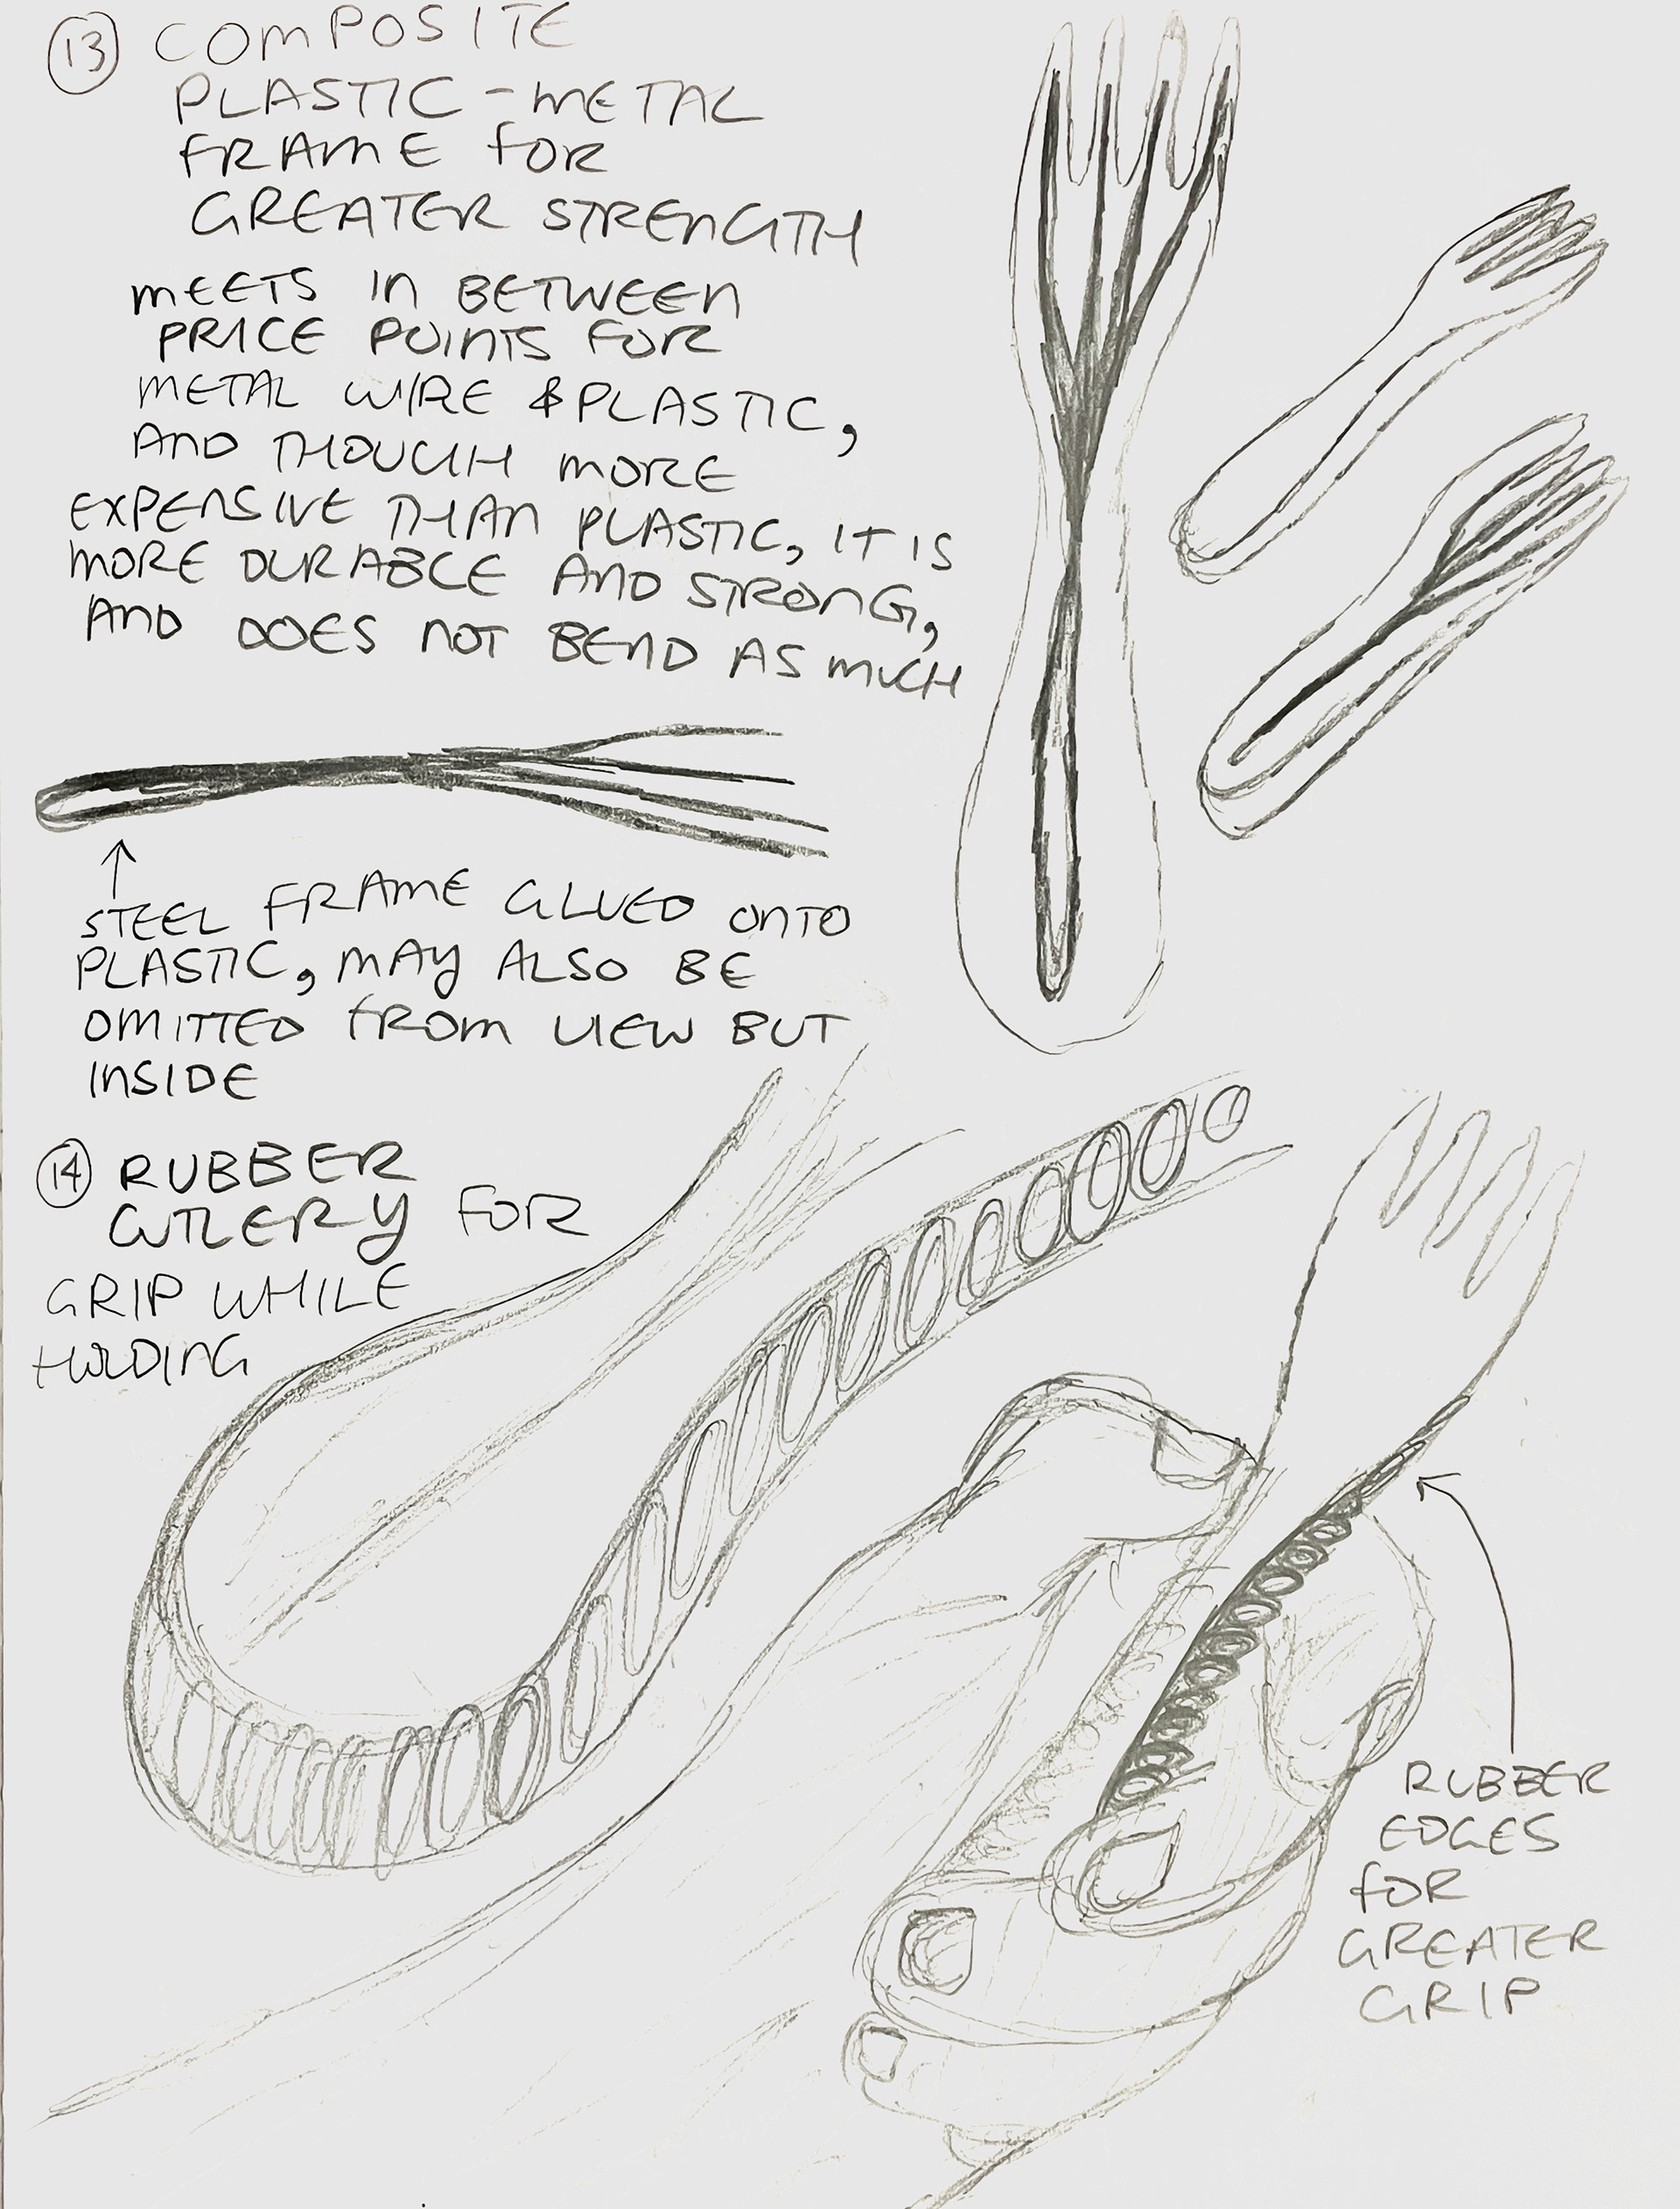 13 COMPOSITE
PLASTIC-METAL
FRAME FOR
GREATER STRENGTH
MEETS IN BETWEEN
PRICE POINTS FOR
METAL WIRE & PLASTIC,
AND THOUGH MORE
EXPENSIVE THAN PLASTIC, IT IS
MORE DURABLE AND STRONG,
AND DOES NOT BEND AS MUCH
STEEL FRAME GLUED ONTO
PLASTIC, MAY ALSO BE
OMITTED FROM VIEW BUT
INSIDE
14 RUBBER
CUTLERY FOR
GRIP WHILE
HOLDING
RUBBER
EDGES
FOR
GREATER
GRIP